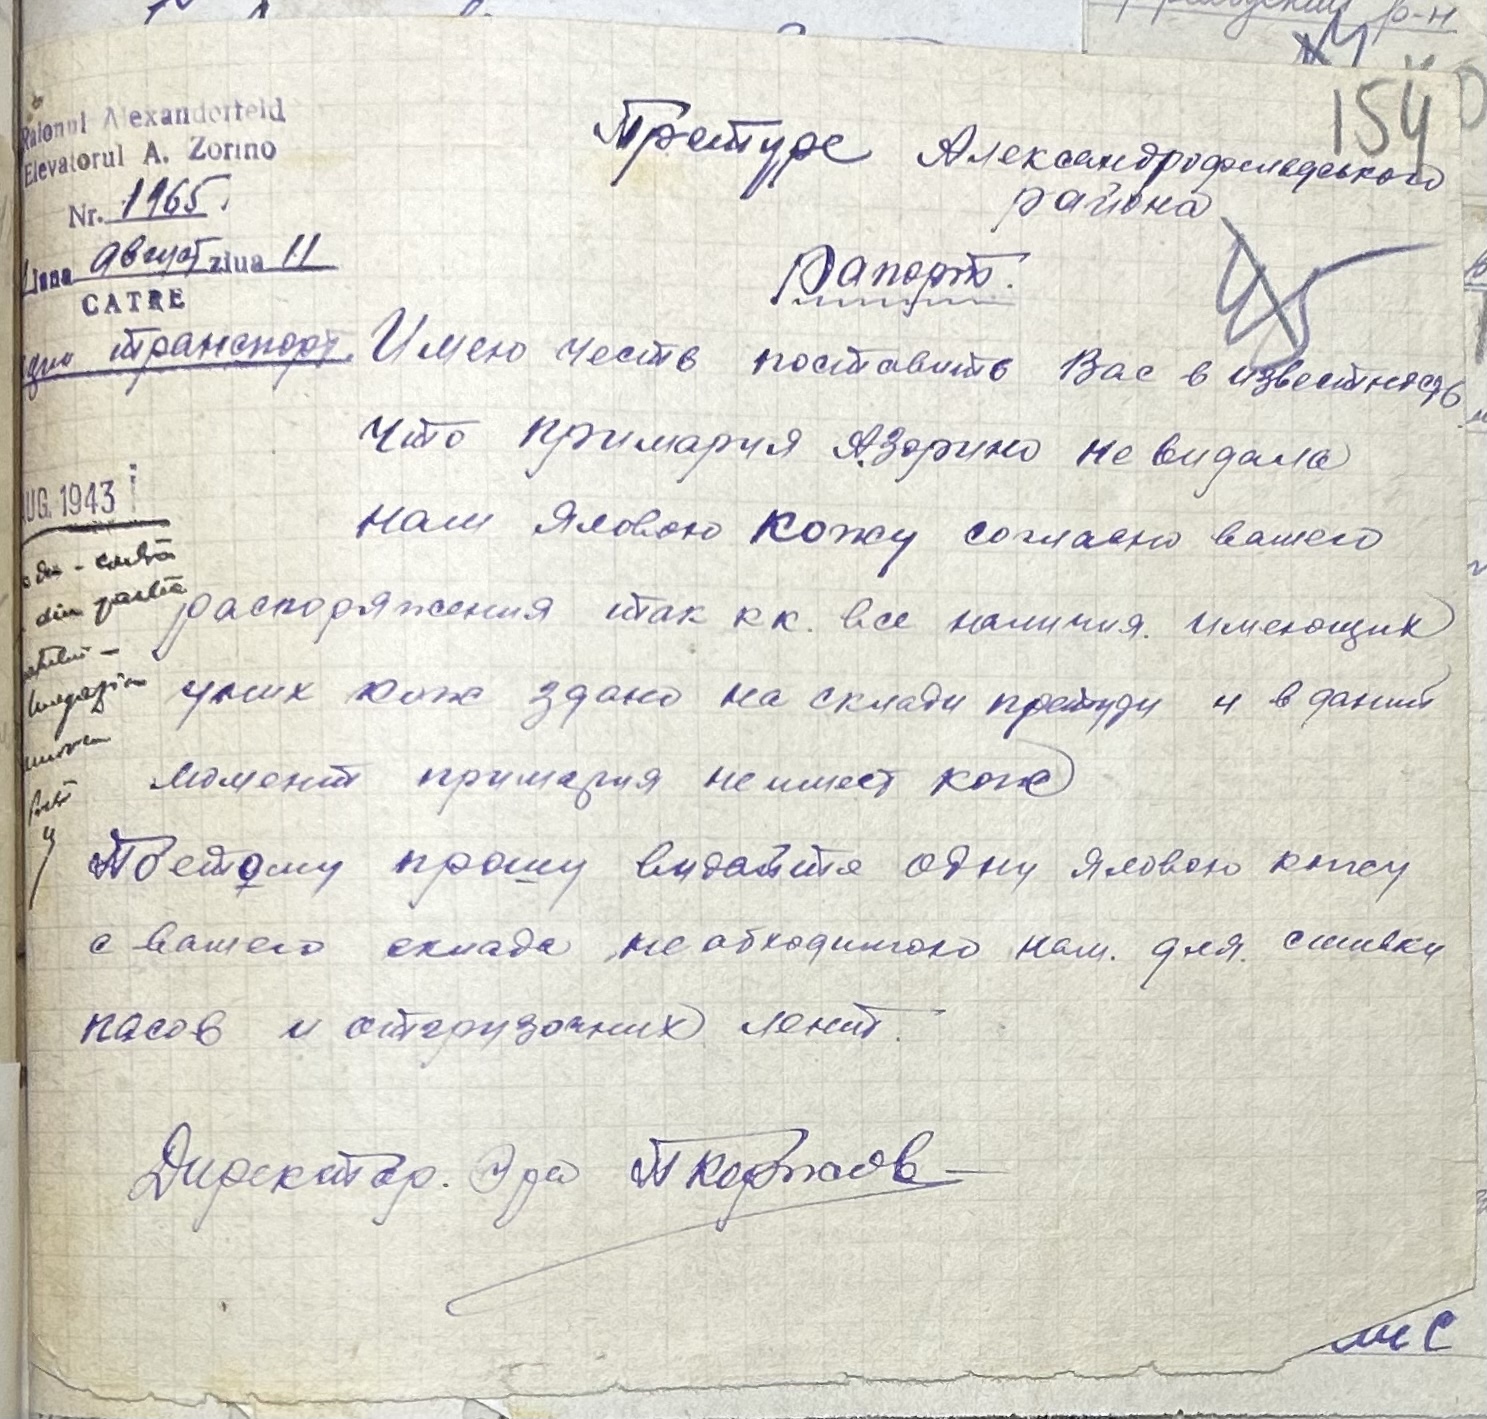 р-н
154
Raionul Alexanderfeld
Elevatorul A. Zorino
Nr. 1965.
Luna август ziua 11
CATRE
транспорт.
Претуре Александрофельдського
района
Рапорт.
Имею честь поставить Вас в известность
что примария А.Зорино не видала
нам яловою кожу согласно вашего
распоряжения итак кк. все наличия. имеющих
уних кож здано на склади претури и в даний
момент примария не имеет кож
Поетому прошу видайте одну яловою кожу
с вашего склада необходимою нам. для. сшивки
пасов и отгрузочних лент.
Директор. Эле ТКоржов
AUG. 1943
din partea